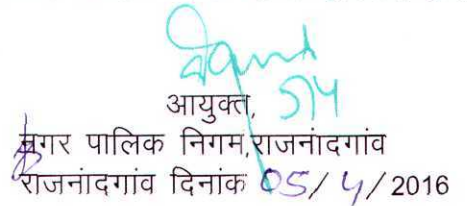 आयुक्त, 5/4
नगर पालिक निगम,राजनांदगांव
राजनांदगांव दिनांक 05/4/2016